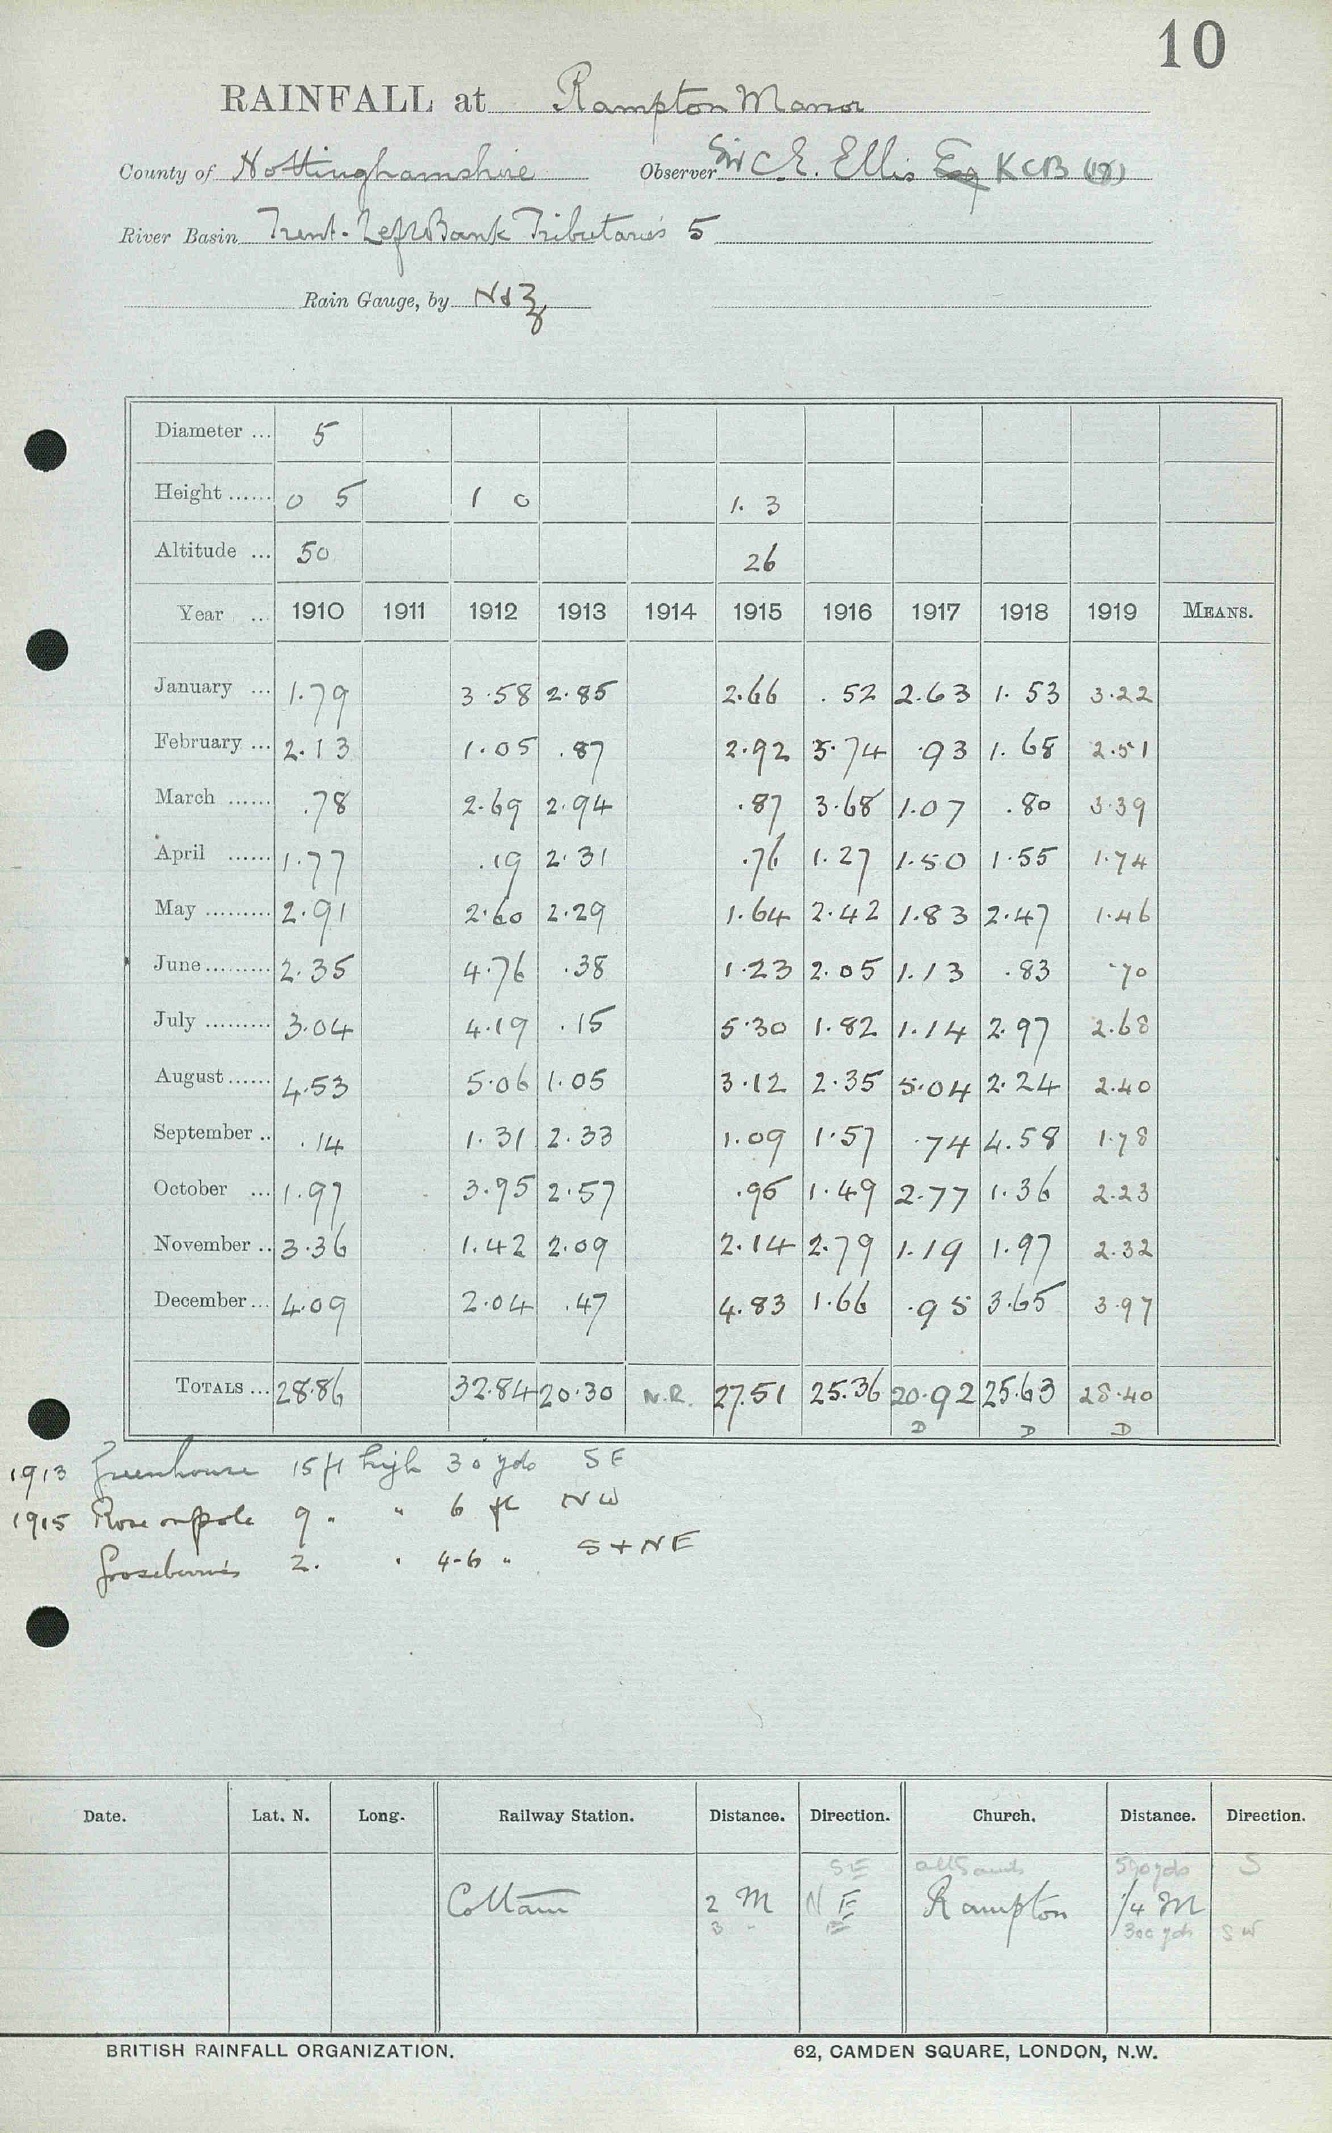 10
RAINFALL at Rampton Manor
County of Nottinghamshire Observer Sir C. E. Ellis Esq KCB (18)
River Basin Trent - Left Bank Tributaries 5
Rain Gauge, by N & Z
Diameter ... 5
Height ...... 0 5 1 0 1. 3
Altitude ... 50 26
Year ... 1910 1911 1912 1913 1914 1915 1916 1917 1918 1919 MEANS.
January ... 1.79 3.58 2.85 2.66 .52 2.63 1.53 3.22
February ... 2.13 1.05 .87 2.92 3.74 .93 1.68 2.51
March ...... .78 2.69 2.94 .87 3.68 1.07 .80 3.39
April ...... 1.77 .19 2.31 .76 1.27 1.50 1.55 1.74
May ......... 2.91 2.60 2.29 1.64 2.42 1.83 2.47 1.46
June ......... 2.35 4.76 .38 1.23 2.05 1.13 .83 .70
July ......... 3.04 4.19 .15 5.30 1.82 1.14 2.97 2.68
August ...... 4.53 5.06 1.05 3.12 2.35 5.04 2.24 2.40
September .. .14 1.31 2.33 1.09 1.57 .74 4.58 1.78
October ... 1.97 3.95 2.57 .95 1.49 2.77 1.36 2.23
November .. 3.36 1.42 2.09 2.14 2.79 1.19 1.97 2.32
December ... 4.09 2.04 .47 4.83 1.66 .95 3.65 3.97
TOTALS ... 28.86 32.84 20.30 N.R. 27.51 25.36 20.92 25.63 28.40
D D D
1913 Greenhouse 15 ft high 30 yds SE
1915 Rose on pole 9 " " 6 ft NW
Gooseberries 2. " 4-6 " S + NE
Date. Lat. N. Long. Railway Station. Distance. Direction. Church. Distance. Direction.
SE All Saints 590 yds S
Cottam 2 M NE Rampton 1/4 M
3 " E 300 yds SW
BRITISH RAINFALL ORGANIZATION. 62, CAMDEN SQUARE, LONDON, N.W.